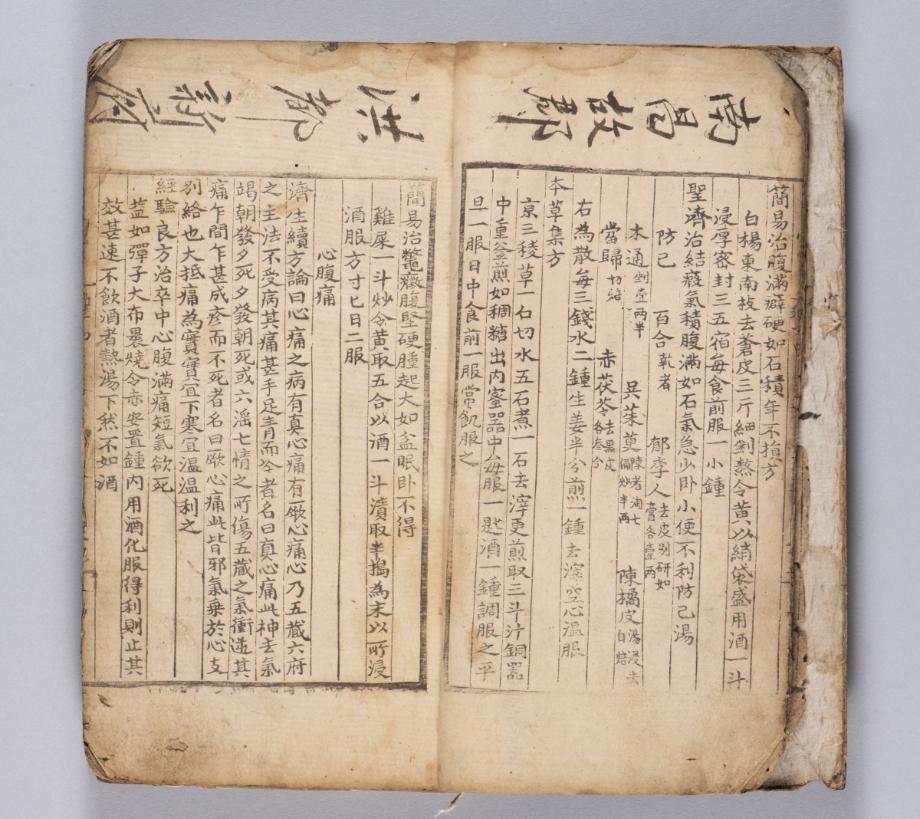 南昌故郡
洪都新府
簡易治腹滿癖硬如石積年不損方
白楊東南枝去蒼皮三斤細剉熬令黃以絹袋盛用酒一斗
浸厚密封三五宿每食前服一小鍾
聖濟治結癥氣積腹滿如石氣急少卧小便不利防己湯
防己 百合乾者 郁李人去皮別研如膏各壹兩
木通剉壹兩半 吳茱萸 陳橘皮湯浸去白焙
當歸切焙 赤茯苓去黑皮各叁分
右為散每三錢水二鍾生姜半分煎一鍾去滓空心溫服
本草集方
京三稜草一石切水五石煮一石去滓更煎取三斗汁銅器
中重釜煎如稠糖出內密器中每服一匙酒一鍾調服之平
旦一服日中食前一服常飢服之
簡易治鼈癥腹堅硬腫起大如盆眠卧不得
雞屎一斗炒令黃取五合以酒一斗漬取半搗為末以所浸
酒服方寸匕日二服
心腹痛
濟生續方論曰心痛之病有真心痛有厥心痛心乃五藏六府
之主法不受病其痛甚手足青而冷者名曰真心痛此神去氣
竭朝發夕死夕發朝死或六淫七情之所傷五藏之氣衝逆其
痛乍間乍甚成疹而不死者名曰厥心痛此皆邪氣乗於心支
別絡也大抵痛為實實宜下寒宜溫溫利之
經驗良方治卒中心腹滿痛短氣欲死
盐如彈子大布褁燒令赤安置鍾內用酒化服得利則止其
效甚速不飲酒者熱湯下然不如酒